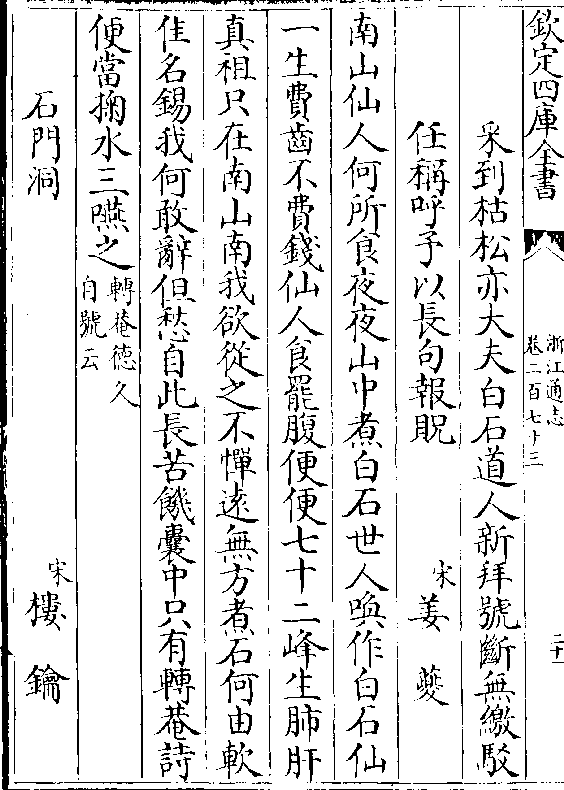 欽定四庫全書
浙江通志
卷二百七十三
二十一
采到枯松亦大夫白石道人新拜號斷無繳駁
任稱呼予以長句報貺
宋姜夔
南山仙人何所食夜夜山中煮白石世人喚作白石仙
一生費齒不費錢仙人食罷腹便便七十二峰生肺肝
真祖只在南山南我欲從之不憚遠無方煮石何由軟
佳名錫我何敢辭但愁自此長苦饑囊中只有轉菴詩
便當掬水三嚥之
轉菴徳久
自號云
石門洞
宋樓鑰